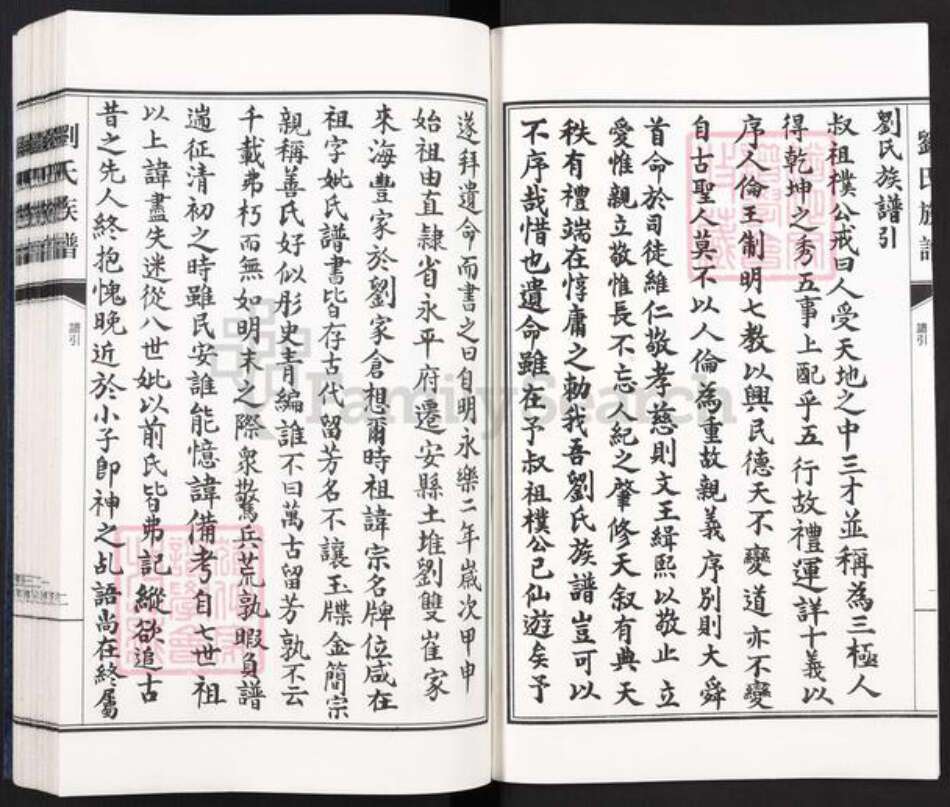 劉氏族譜引
叔祖樸公戒曰人受天地之中三才並稱為三極人
得乾坤之秀五事上配乎五行故禮運詳十義以
序人倫王制明七教以興民德天不變道亦不變
自古聖人莫不以人倫為重故親義序別則大舜
首命於司徒維仁敬孝慈則文王緝熙以敬止立
愛惟親立敬惟長不忘人紀之肇修天叙有典天
秩有禮端在惇庸之勅我吾劉氏族譜豈可以
不序哉惜也遺命雖在予叔祖樸公已仙遊矣予
遂拜遺命而書之曰自明永樂二年歲次甲申
始祖由直隸省永平府遷安縣土堆劉雙崔家
來海豐家於劉家倉想爾時祖諱宗名牌位咸在
祖字妣氏譜書皆存古代留芳名不讓玉牒金簡宗
親稱善氏好似彤史青編誰不曰萬古留芳孰不云
千載弗朽而無如明末之際衆驚兵荒孰暇負譜
遄征清初之時雖民安誰能憶諱備考自七世祖
以上諱盡失迷從八世妣以前氏皆弗記縱欲追古
昔之先人終抱愧晚近於小子卽神之乩語尚在終屬
劉氏族譜
譜引
劉氏族譜
譜引
FamilySearch